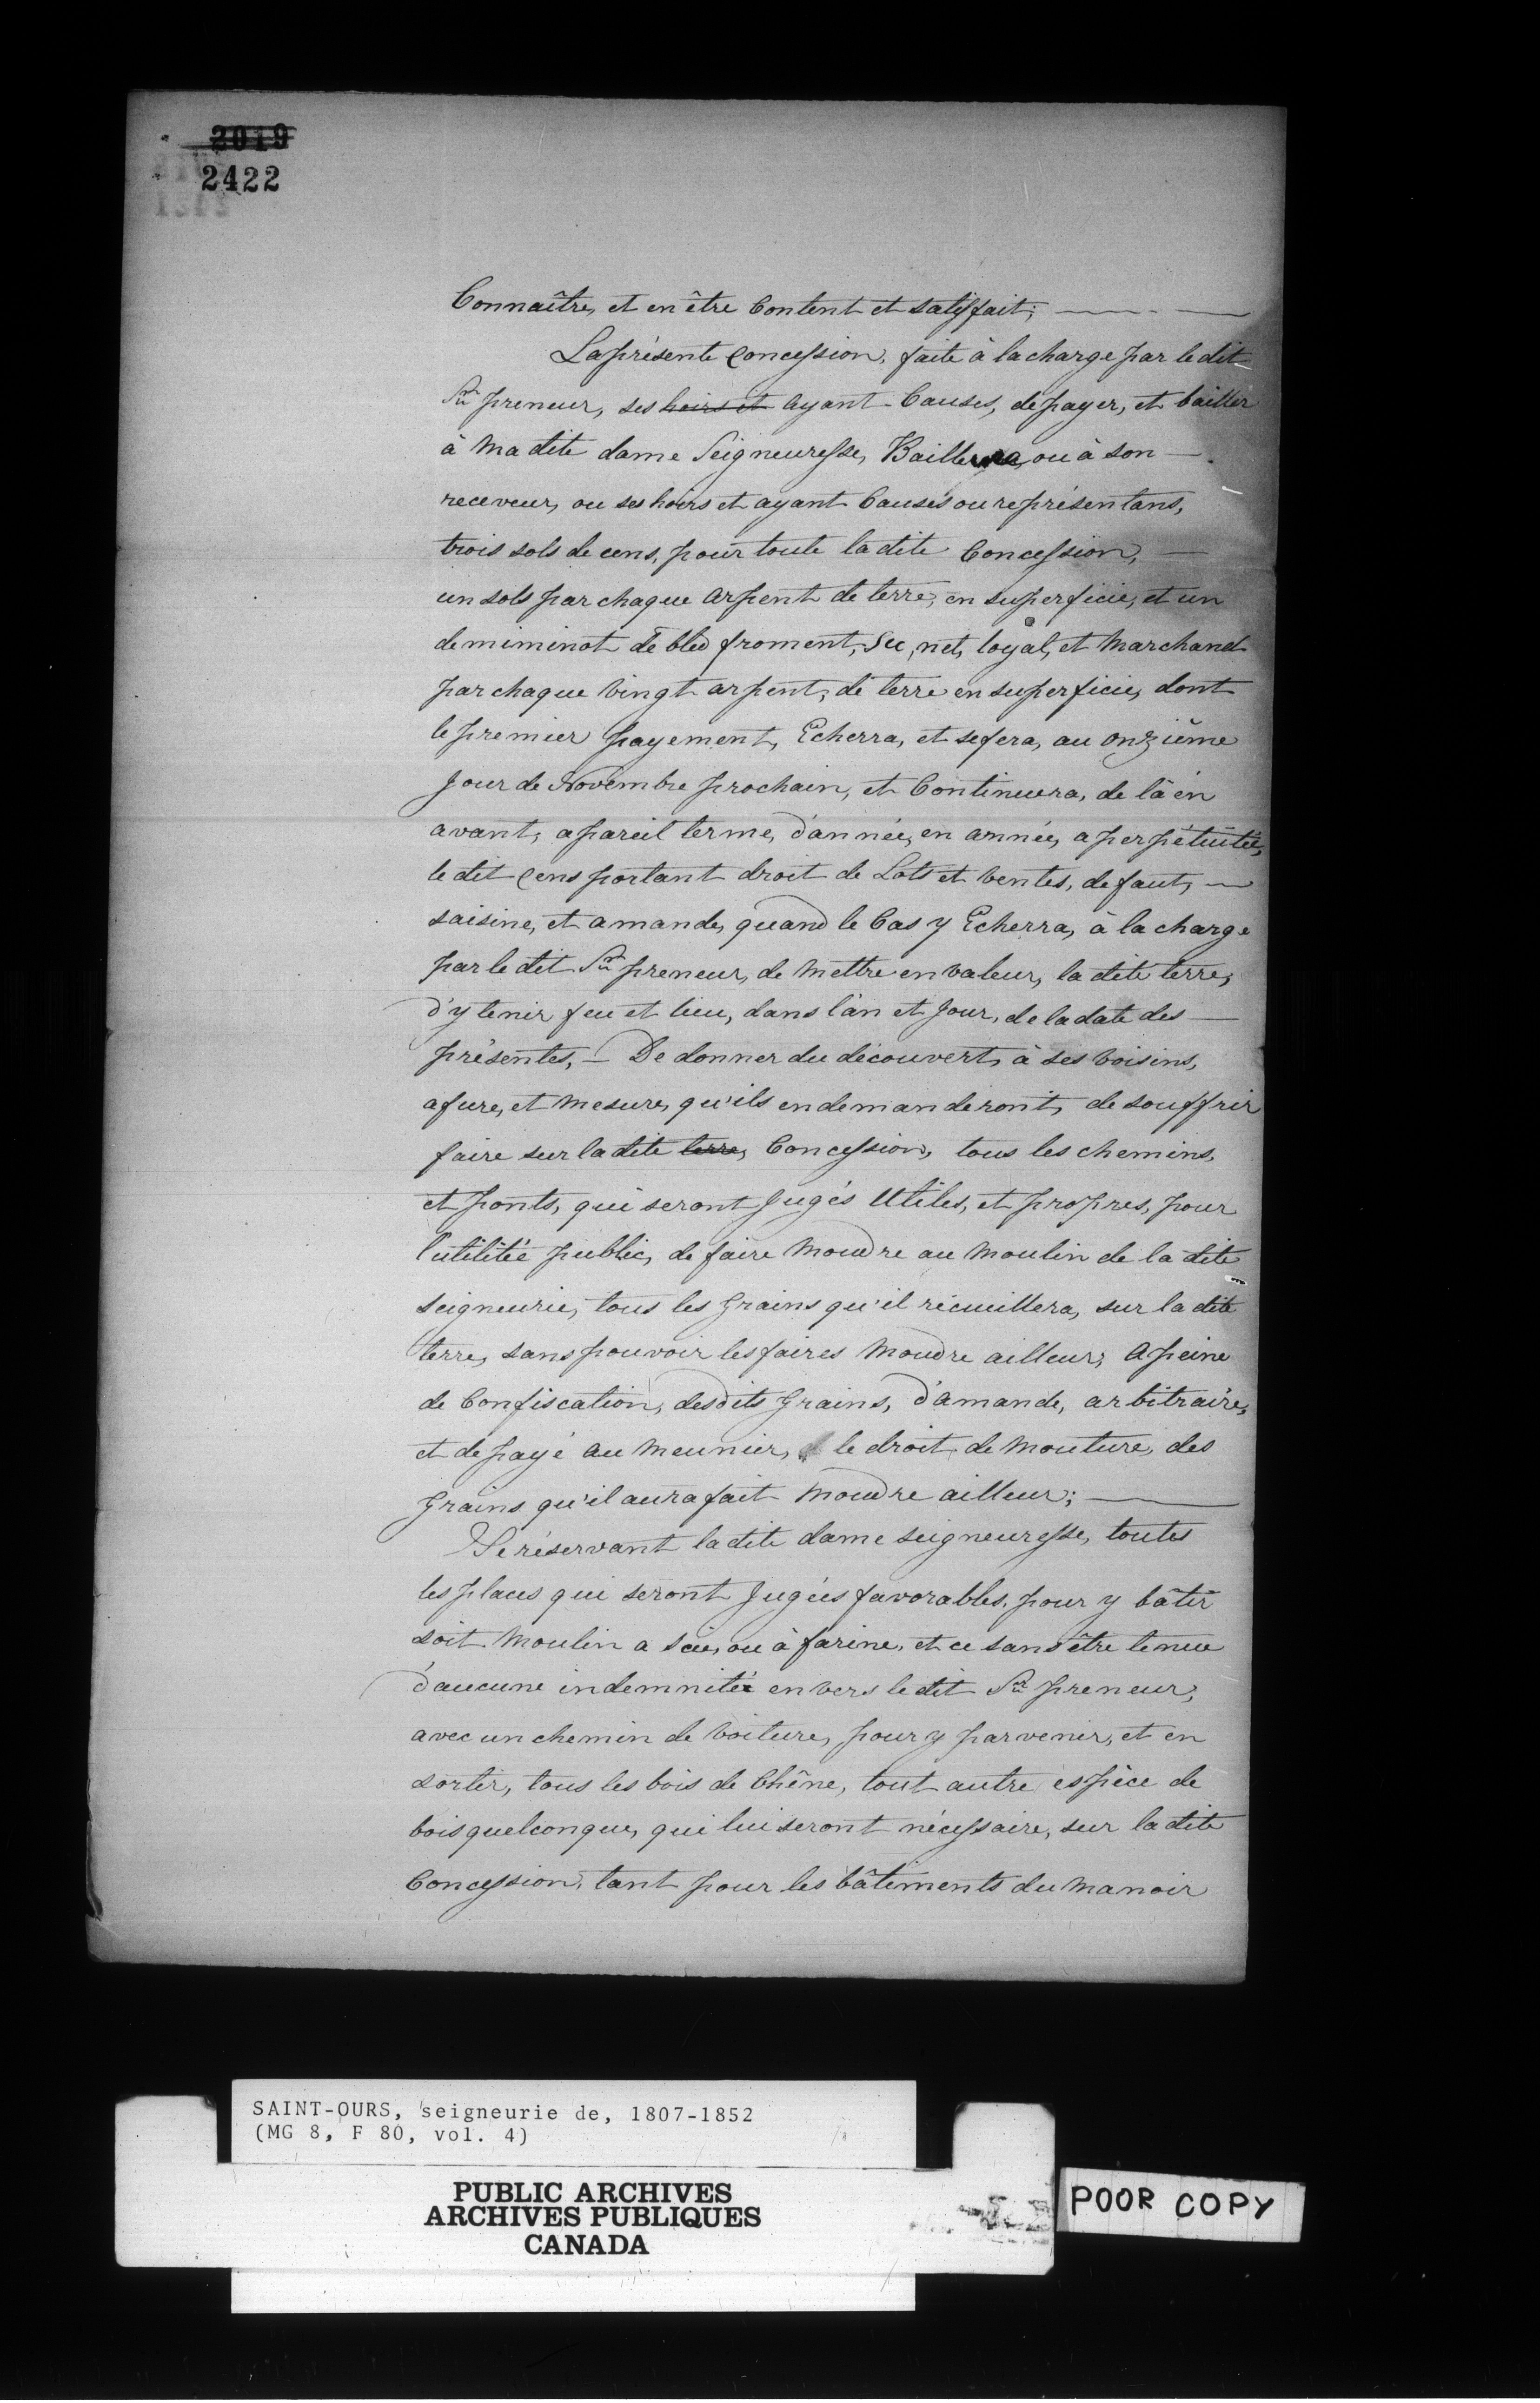 2019
2422
Connaître, et en être Content et satisfait;
La présente Concession, faite à la charge par le dit
Sr. preneur, ses hoirs et ayant-Causes, de payer, et bailler
à ma dite dame Seigneuresse, ou à son
receveur, ou ses hoirs et ayant Causes ou représentans,
trois sols de cens, pour toute la dite Concession,
un sols par chaque arpent de terre, en superficie, et un
demiminot de bled froment, sec, net, loyal, et marchand
par chaque vingt arpent, de terre en superficie, dont
le premier payement, Echerra, et se fera, au onzième
jour de Novembre prochain, et Continuera, de là en
avant, a pareil terme, d'année, en année, a perpétuitée,
le dit Cens portant droit de Lots et ventes, defaut,
saisine, et amande, quand le Cas y Echerra, à la charge
par le dit Sr. preneur, de mettre en valeur, la dite terre,
d'y tenir feu et lieu, dans l'an et Jour, de la date des
présentes, — De donner du découvert, à ses voisins,
a fure, et mesure, qu'ils en demanderont, de souffrir
faire sur la dite terre, Concession, tous les chemins,
et ponts, qui seront Jugés Utiles, et propres, pour
l'utilitée public, de faire moudre au moulin de la dite
seigneurie, tous les grains qu'il récuillera, sur la dite
terre, sans pouvoir les faires moudre ailleur, A peine
de Confiscation, desdits grains, d'amande, arbitraire,
et de payé au meunier, le droit de mouture, des
grains qu'il aura fait moudre ailleur;
Se réservant la dite dame seigneuresse, toutes
les places qui seront Jugées favorables, pour y bâtir
soit moulin a scie, ou à farine, et ce sans être tenue
d'aucune indemnitée envers le dit Sr. preneur,
avec un chemin de voiture, pour y parvenir, et en
sortir, tous les bois de Chêne, tout autre espèce de
bois quelconque, qui lui seront nécessaire, sur la dite
Concession, tant pour les bâtiments du manoir
SAINT-OURS, seigneurie de, 1807-1852
(MG 8, F 80, vol. 4)
PUBLIC ARCHIVES
ARCHIVES PUBLIQUES
CANADA
POOR COPY